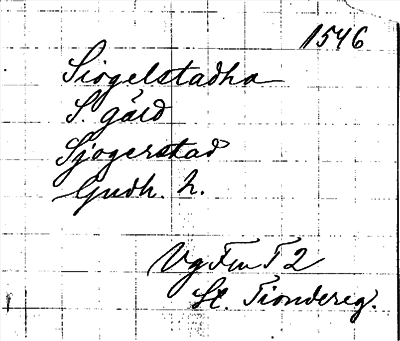 1546
Siogelstadha
S. gård
Sjogerstad
Gudh. h.
Vg Fm T 2
St. Tiondereg.